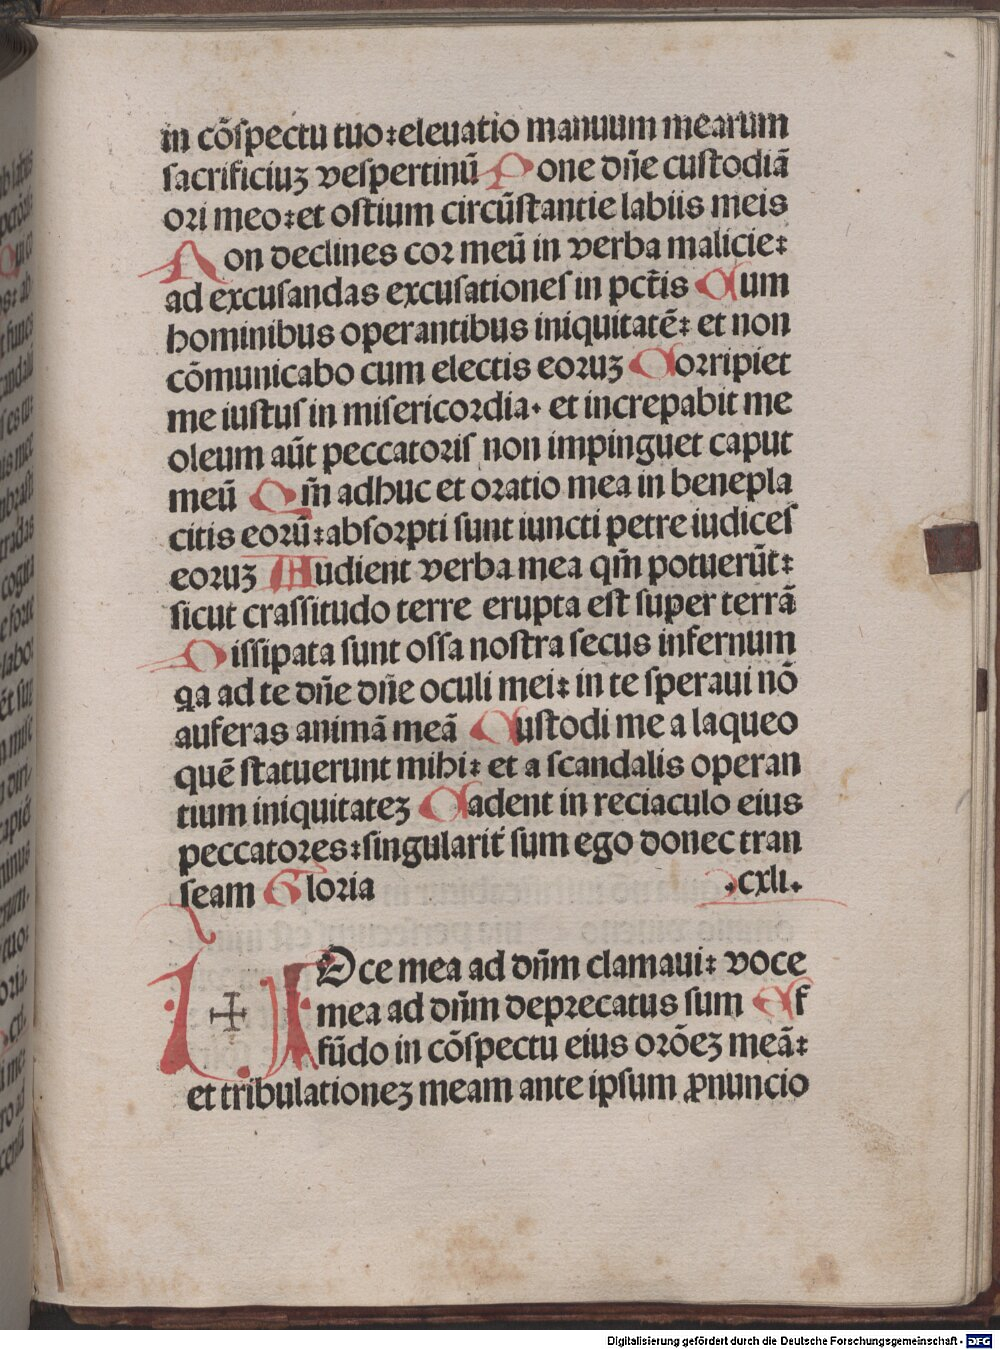 in cõspectu tuo:eleuatio manuum mearum
sacrificiuʒ vespertinũ Pone dñe custodiã
ori meo:et ostium circũstantie labiis meis
Non declines cor meũ in verba malicie:
ad excusandas excusationes in pct̃is Cum
hominibus operantibus iniquitatẽ: et non
cõmunicabo cum electis eoruʒ Corripiet
me iustus in misericordia· et increpabit me
oleum aũt peccatoris non impinguet caput
meũ Qm̃ adhuc et oratio mea in benepla
citis eorũ:absorpti sunt iuncti petre iudices
eoruʒ Audient verba mea qm̃ potuerũt:
sicut crassitudo terre erupta est super terrã
Dissipata sunt ossa nostra secus infernum
qa ad te dñe dñe oculi mei: in te speraui nõ
auferas animã meã Custodi me a laqueo
quẽ statuerunt mihi: et a scandalis operan
tium iniquitateʒ Cadent in reciaculo eius
peccatores:singularit̃ sum ego donec tran
seam Gloria ·cxli·
VOce mea ad dñm clamaui: voce
mea ad dñm deprecatus sum Ef
fũdo in cõspectu eius orõeʒ meã:
et tribulationeʒ meam ante ipsum ꝓnuncio
Digitalisierung gefördert durch die Deutsche Forschungsgemeinschaft - DFG